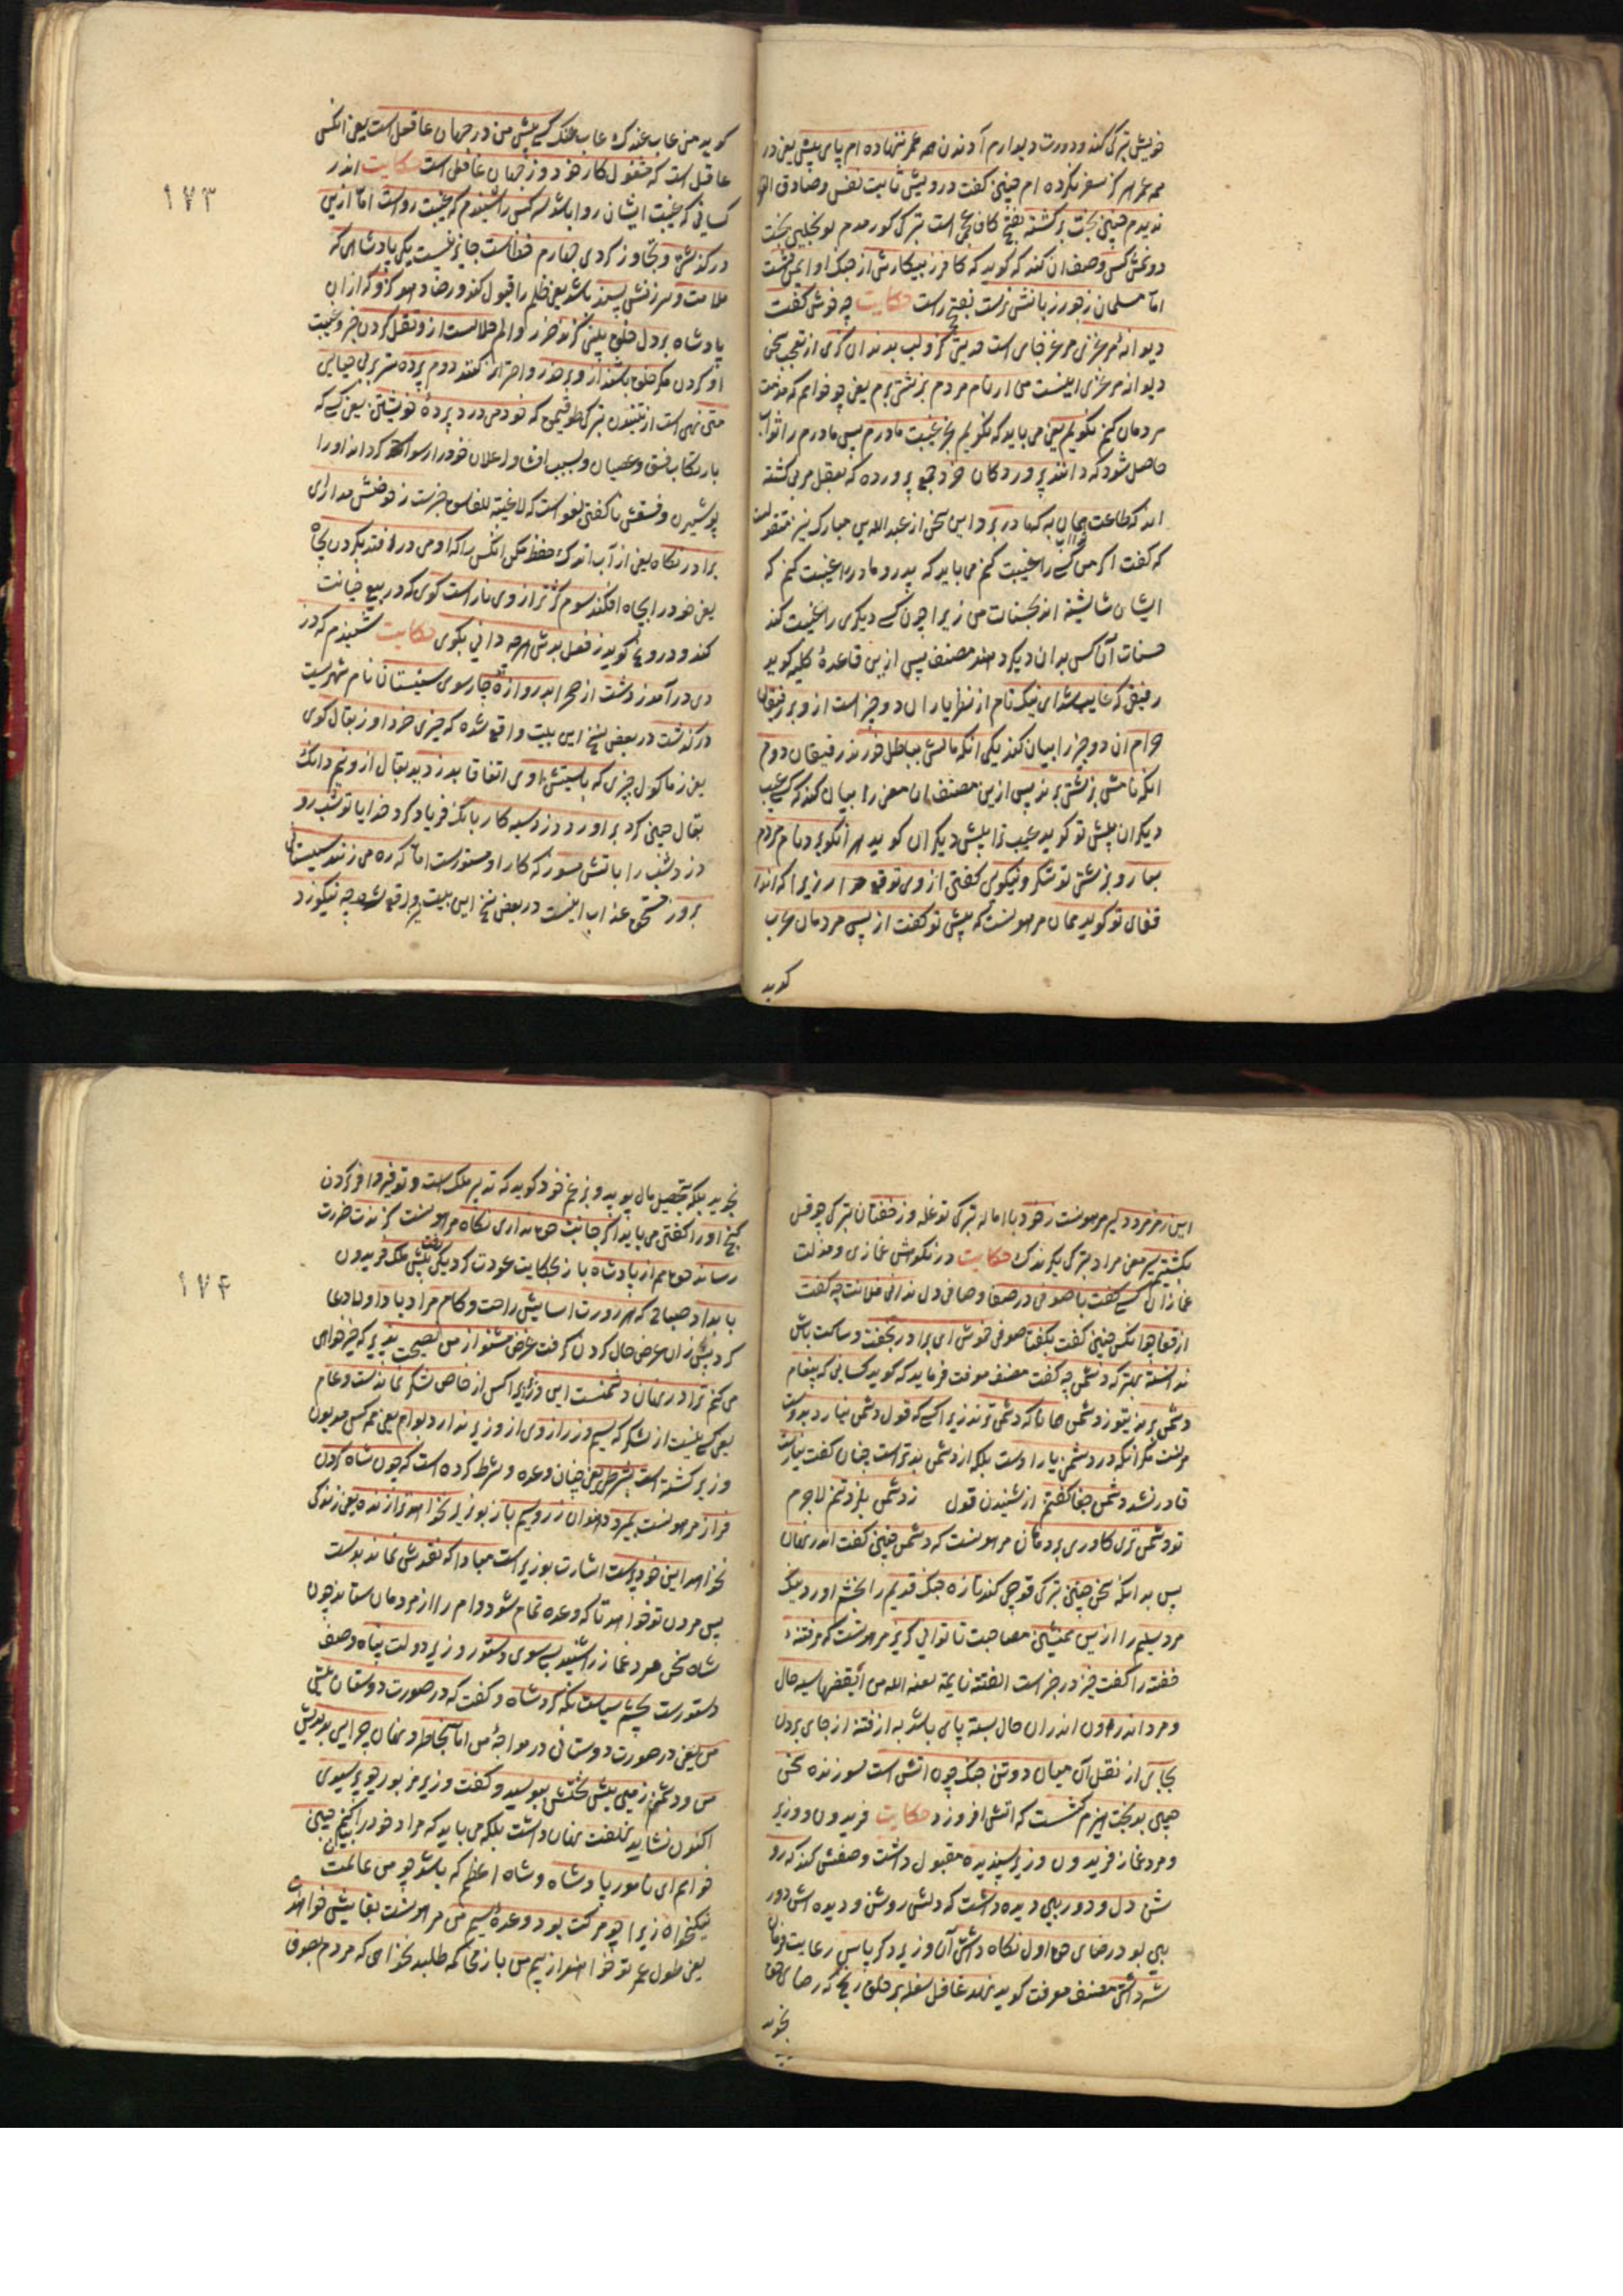 خویش ترکی کند و دورت دیوارم آدندن همه عمر ننهاده ام پای پیش یعنی در
همه عمر هرگز سفر نکرده ام چنین گفت درویش ثابت نفس و صادق
ندیدم چنین بخت برگشته بفتح کاف عجمی است ترکی کورمدم بختی
دونمش کس وصف ان کند که گوید که کافر ز پیکارش از جنگ او ایمن نشست
اما مسلمان ز جور زبانش نرست بفتح راست حکایت چه خوش گفت
دیوانهٔ مرغزی مرغز جای است حدیثی کزو لب بدندان گزی از تعجب سخن
دیوانه مرغزی اینست من ار نام مردم بزشتی برم یعنی چو خواهم که مذمت
مردمان کنم نگویم یعنی می باید که نگویم بجز غیبت مادرم پس مادرم را ثواب
حاصل شود که دانند پروردگان خرد جمع پرورده که بعقل مربی گشته
اند که طاعت همان به که مادر برد و این سخن از عبدالله بن مبارک نیز منقولست
که گفت اگر من کسی را غیبت کنم می باید که پدر و مادر را غیبت کنم که
ایشان شایسته اند بحسنات من زیرا چون کسی دیگری را غیبت کند
حسنات آن کس بدان دیگر دهند مصنف پس ازین قاعدهٔ کلیه گوید
رفیقی که غایب شد ای نیک نام از نظر یاران دو چیز است از و بر رفیقان
حرام ان دو چیز را بیان کند یکی انکه مالش بباطل خورند رفیقان دوم
انکه نامش بزشتی برند پس ازین مصنف ان معنی را بیان کند که کسی عیب
دیگران پیش تو گوید عیب ترا پیش دیگران گوید هر انکو برد نام مردم
بعار و بزشتی تو شکر و نیکویی گفتن از وی توقع مدار زیرا که اندر
قفای تو گوید همان مرهونست که پیش تو گفت از پس مردمان عرب
گوید
گوید من عاب عندک عاب عنک کسی پیش من در جهان عاقل است یعنی انکس
عاقل است که مشغول کار خود و ز جهان غافل است حکایت اندر
کسانی که غیبت ایشان روا باشد سه کس را شنیدم که غیبت رواست اما ازین
درگذشتی و تجاوز کردی چهارم خطاست جایز نیست یکی پادشاهی که
ملامت و سرزنش پسند باشد یعنی ظلم را قبول کند و رضا دهد کزو که از ان
پادشاه بر دل خلق بینی گزند ضرر و الم حلالست ازو نقل کردن خبر و غیبت
او کردن مگر خلق باشند ازو بر حذر و احتراز کنند دوم پرده بر بی حیائی
متن تهی است از تنیدن ترکی طوقیمق که خود می درد پردهٔ خویشتن یعنی کسی که
بارتکاب فسق و عصیان و بسبب افشا و اعلان خود را رسوا کرداند او را
پوشیدن و فسقش ناگفتن لغو است که لا غیبة للفاسق خبرست ز حوضش مدار ای
برادر نگاه یعنی از آب اندک حفظ مکن انکس را که او می در افتد بگردن بچاه
یعنی خود را بچاه افکند سوم کژ ترازوی ناراست گوی که در بیع خیانت
کند و دروغ گوید ز فعل بدش هرچه دانی بگوی حکایت شنیدم که دز
دی درآمد ز دشت از صحرا بدروازهٔ چارسوی سیستان نام شهریست
درگذشت در بعضی نسخ این بیت واقع شده که چیزی خرد او ز بقال کوی
یعنی ز ماکول چیزی که بایستش اوی اتفاقا بدزدید بقال ازو نیم دانگ
بقال چنین کرد برآورد دزد سیه کار بانگ فریاد کرد خدایا تو شب رو
دزد شب را باتش مسوز که کار او مستورست اما که ره می زند سیستانی
بروز مستحق عذاب اینست در بعضی نسخ این بیت واقع شده چه نیکو زد
۱۷۳
این رمز مرد دلیر مرهونست ز خود با اماله ترکی توغلغه و ز خفتان ترکی چوقل
بگشته سیر معنی مراد ترکی یکرندک حکایت در نکوهش غمازی و مذلت
غمازان کسی گفت با صوفی در صفا و صافی دل ندانی فلانت چه گفت
از قفا چو انکس چنین گفت بگفتا صوفی خوش ای برادر بخفت و ساکت باش
ندانسته بهتر که دشمن چه گفت مصنف معرفت فرماید که گوید کسانی که پیغام
دشمن برند بتو ز دشمن همانا که دشمن ترند زیرا کسی که قول دشمن نیارد بدوست
مرنست مگر انکه در دشمنی یار اوست بلکه از دشمن بدترست چنان گفت نیارست
قادر نشد دشمن جفا گفتنم از شنیدن قول ز دشمن بلرزد تنم لاجرم
تو دشمن تری کاوری بر دهان مرهونست که دشمن چنین گفت اندر نهان
پس بدانکه سخن چین ترکی قوجی کند تازه جنگ قدیم را بخشم آورد نیک
مرد سلیم را ازین همنشین مصاحبت تا توانی گریز مرهونست که مر فتنهٔ
خفته را گفت خیز در خبر است الفتنة نایمة لعنه الله من ایقظها سیه حال
و مرد اندر و ان اندران حال بسته پای باشد به از فتنه از جای بردن
بجایی از نقل آن میان دو تن جنگ چون اتش است سوزنده سخن
چین بدبخت هیزم کشست که اتش افروزد حکایت فریدون و وزیر
و مرد غماز فریدون وزیر پسندیده مقبول داشت وصفش کند که رو
شن دل و دوربین دیده داشت که دلش روشن و دیده اش دور
بین بود رضای حق اول نگاه داشتی آن وزیر دگر پاس رعایت فرمان
شه داشتی مصنف معرفت گوید نهد عامل سفله بر خلق رنج که رضای حق
نجوید
نجوید بلکه تحصیل مال پوید و بزعم خود گوید که تدبیر ملک است و توفیر وافر کردن
گنج او را گفتن می باید اگر جانب حق نداری نگاه مرهونست گزندت ضررت
رساند حق هم از پادشاه باز بحکایت عودت کرد یکی رفت پیش ملک فریدون
بامداد صباحی که هر روزت اسایش راحت و کام مراد باد اولا دعا
کرد پیش ازان عرض حال کردن گرفت غرض مشنو از من نصیحت پذیر که خیرخواهی
می کنم ترا در نهان دشمنست این وزیر اکس از خاص لشکر نماندست و عام
یعنی کسی نیست از لشکر که سیم و زر از وی از وزیر ندارد بوام یعنی هم کس مدیون
وزیر گشته است بشرطی یعنی چنان وعده و شرط کرده است که چون شاه گردن
فراز مرهونست بمیرد دهند ان زر و سیم باز بوزیر نخواهد ترا زنده یعنی زندگی
نخواهد این خودپرست اشارت بوزیر است مبادا که نقدش نماند بدست
پس مردن تو خواهد تا که وعده تمام شود و وام را از مردمان ستاند چون
شاه سخن مرد غماز را شنید بسوی دستور وزیر دولت پناه وصف
دستورست بچشم سیاست نگه کرد شاه و گفت که در صورت دوستان پیش
من یعنی در صورت دوستانی در مواجهٔ من اما بخاطر و نهان چرایی بداندیش
من و دشمن زمین پیش تختش ببوسید و گفت وزیر مزبور چو پرسیدی
اکنون نشاید نهفت نهان داشت بلکه می باید که مراد خود را گویم چنین
خواهم ای نامور پادشاه و شاه اعظم که باشد چو من عالمت
نیکخواه زیرا چو مرگت بود وعدهٔ سیم من مرهونست بقایش خواهند
یعنی طول عمر تو خواهند از بیم من باز می که طلبد نخواهی که مردم بصدق
۱۷۴